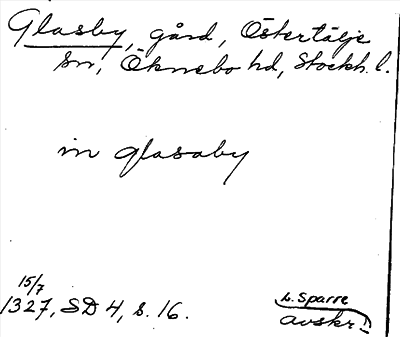 Glasby, gård, Östertälje
sn, Öknebo hd, Stockh. l.
in glasaby
15/7
1327, SD 4, s. 16.
L. Sparre
avskr!